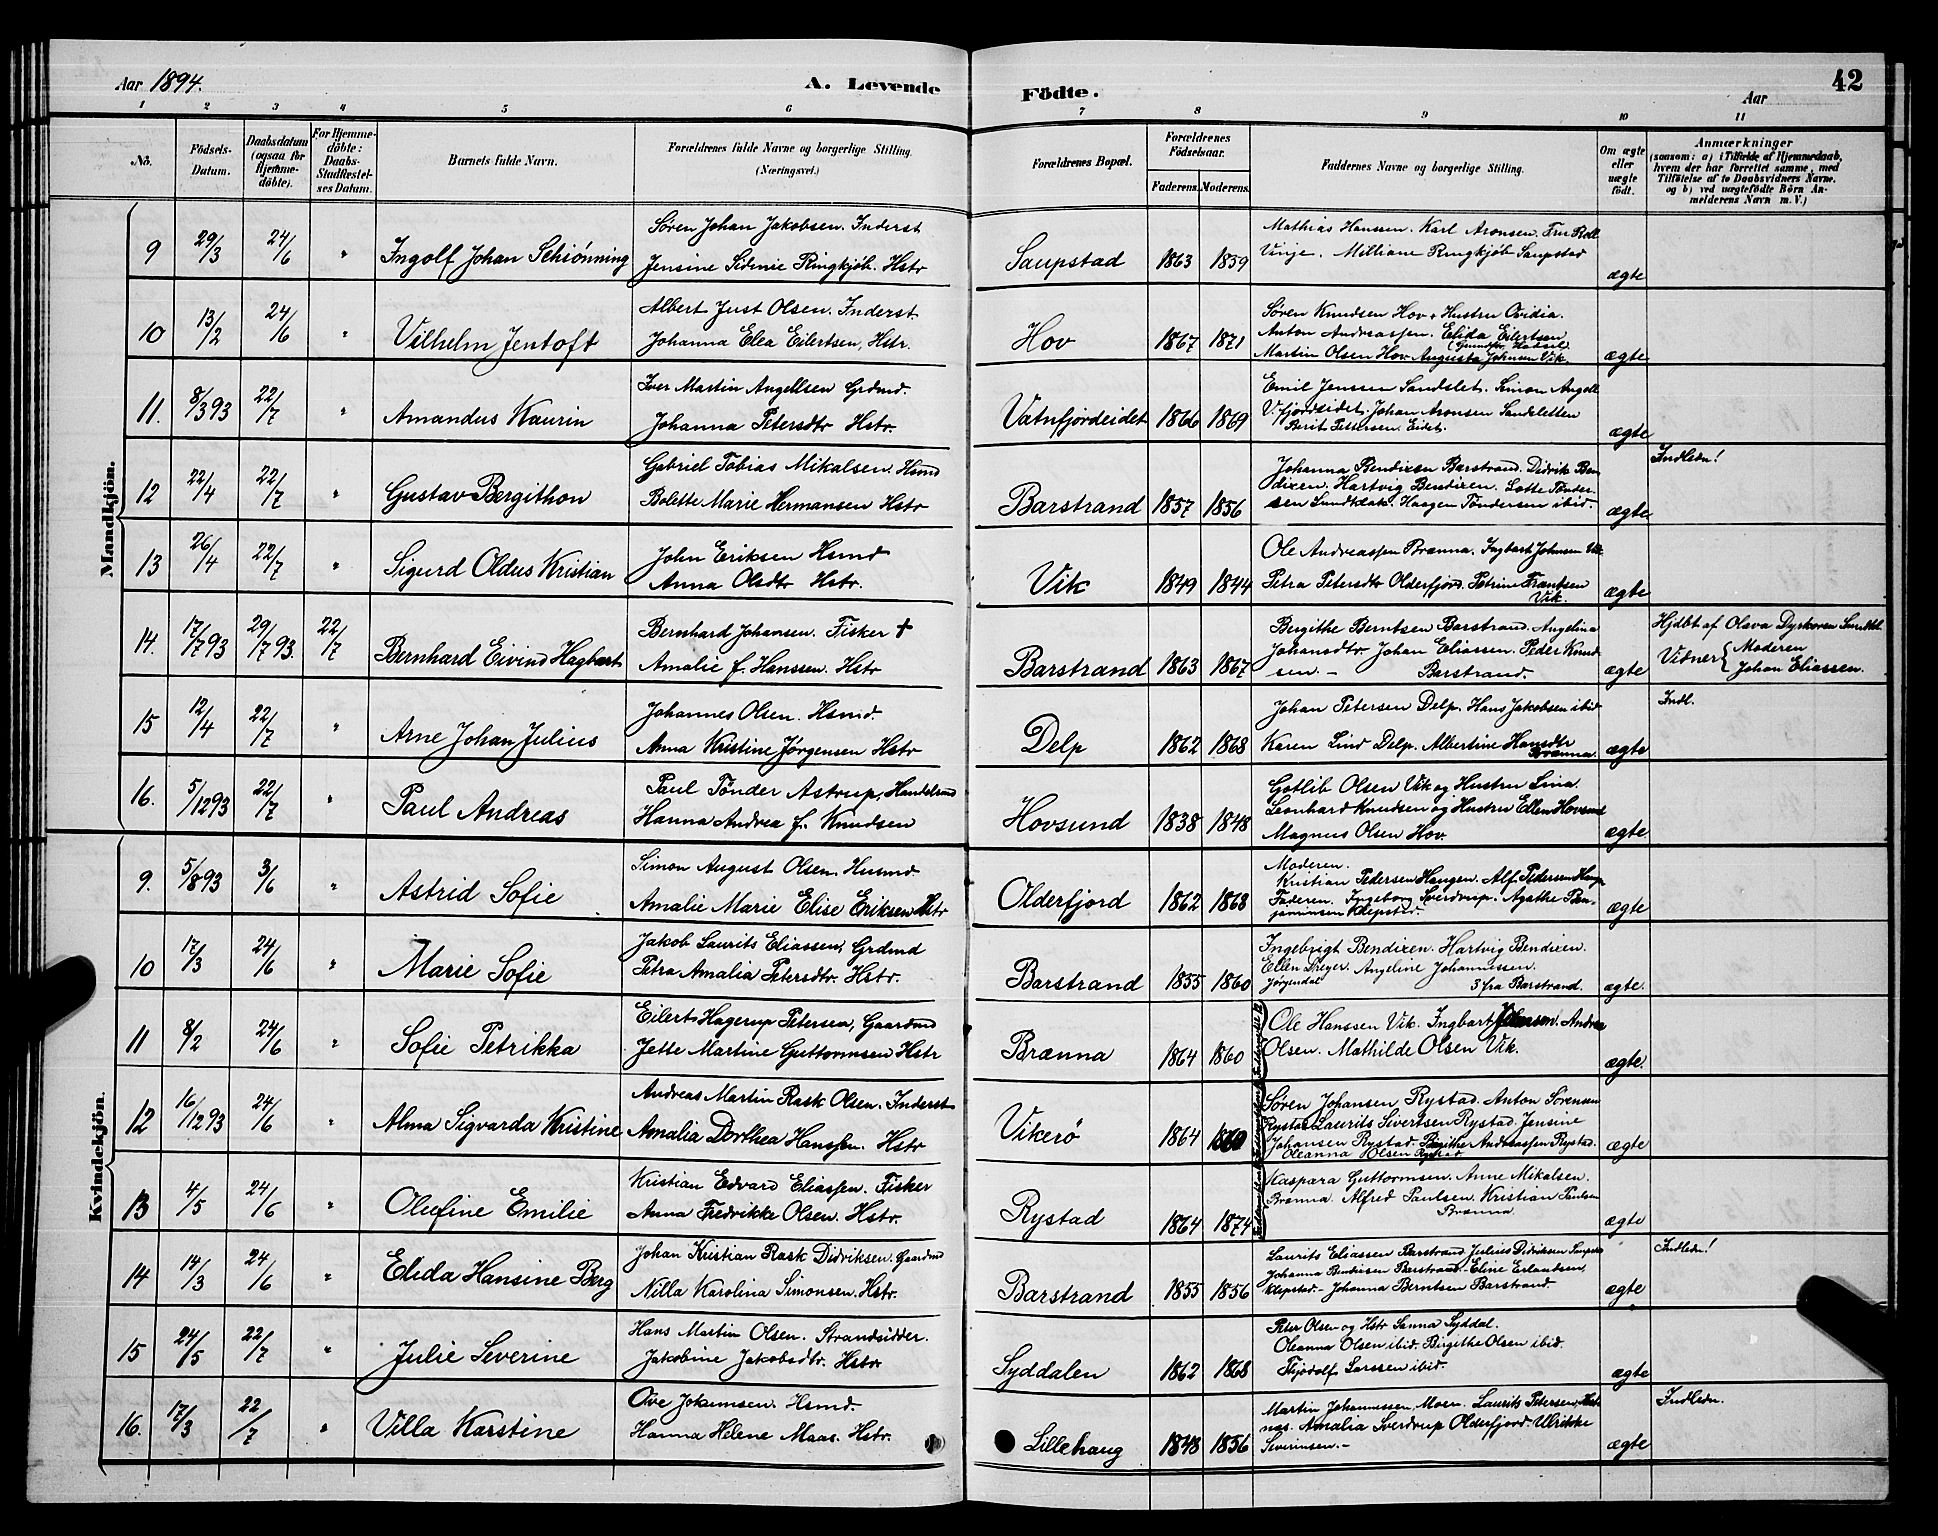 Aar 1894.
A. Levende Födte.
Aar
42
1 2 3 4 5 6 7 8 9 10 11
No.
Födsels-Datum.
Daabsdatum (ogsaa for Hjemme-döbte).
For Hjemme-döbte: Daabs-Stadfæstel-ses Datum.
Barnets fulde Navn.
Forældrenes fulde Navne og borgerlige Stilling. (Næringsvei.)
Forældrenes Bopæl.
Forældrenes Födselsaar.
Faderens. Moderens.
Faddernes Navne og borgerlige Stilling.
Om ægte eller uægte födt.
Anmærkninger
(saasom: a) i Tilfælde af Hjemmedaab, hvem der har forrettet samme, med Tilföielse af to Daabsvidners Navne, og b) ved uægtefödte Börn Anmelderens Navn m. V.)
Mandkjön.
9 29/3 24/6 " Ingolf Johan Schiønning
Søren Johan Jakobsen. Inderst
Jensine Sidenie Ringkjøb. Hstr
Saupstad 1863 1859
Mathias Hanssen. Karl Aronsen. Fru Roll
Vinje. Milliane Ringkjøb Saupstad
ægte
10 13/2 24/6 " Vilhelm Jentoft
Albert Just Olsen. Inderst.
Johanna Elea Eilertsen, Hstr.
Hov 1867 1871
Søren Knudsen Hov + Hustru Ovidia.
Anton Andreassen. Elida Eilertsen
Martin Olsen Hov Augusta Johnsen Vik.
ægte
11. 8/3 93 22/7 " Amandus Kaurin
Iver Martin Angellsen Grdmd.
Johanna Petersdtr Hstr.
Vatnfjordeidet 1866 1869
Emil Janssen Sandslet. Simon Angell
V.fjordeidet. Johan Aronsen Sandsletten
Berit Pettersen. Eidet.
ægte
12 22/4 22/7 " Gustav Bergithon
Gabriel Tobias Mikalsen. Hsmd
Bolette Marie Hermansen Hstr
Barstrand 1857 1856
Johanna Bendixen Barstrand. Didrik Ben
dixen. Hartvig Bendixen. Lotte Tønder
sen Sundklak. Haagen Tøndersen ibid.
ægte
Indledn!
13 26/4 22/7 " Sigurd Oldus Kristian
John Eriksen Hsmd
Anna Olsdtr Hstr.
Vik 1849 1844
Ole Andreassen Brænna. Ingbart Johnsen Vik
Petra Petersdtr Olderfjord. Petrine Frantsen
Vik.
ægte
14. 17/7 93 29/7 93. 22/7 Bernhard Eivind Hagbart
Bernhard Johansen. Fisker †
Amalie f. Hanssen. Hstr
Barstrand 1863 1867
Bergithe Berntsen Barstrand. Angelina
Johansdtr. Johan Eliassen. Peder Knud
sen. – Barstrand.
ægte
Hjdbt af Olava Dyrkoren
Vidner { Moderen
Johan Eliassen.
15 12/4 22/7 " Arne Johan Julius
Johannes Olsen. Hsmd.
Anna Kristine Jørgensen Hstr
Delp 1862 1868
Johan Petersen Delp. Hans Jakobsen ibid
Karen Lind Delp. Albertine Hansdtr
Brænna
ægte
Indl.
16. 5/12 93 22/7 " Paul Andreas
Paul Tønder Astrup, Handelsmd
Hanna Andrea f. Knudsen
Hovsund 1838 1848
Gotlib Olsen Vik og Hustru Lina.
Leonhard Knudsen og Hustru Ellen Hovsund
Magnus Olsen Hov.
ægte
Kvindekjön.
9. 5/8 93 3/6 " Astrid Sofie
Simon August Olsen. Husmd
Amalie Marie Elise Eriksen Hstr
Olderfjord 1862 1868
Moderen.
Kristian Pedersen Haugen. Alf Pedersen Haug
Faderen. Ingeborg Sverdrup. Agathe Ben-
jaminsen Klepstad.
ægte
10 17/3 24/6 " Marie Sofie
Jakob Laurits Eliassen, Grdmd
Petra Amalia Petersdtr. Hstr.
Barstrand 1855 1860
Ingebrigt Bendixen. Hartvig Bendixen.
Ellen Dreyer. Angeline Johannessen.
Jørgendal 3 fra Barstrand.
ægte.
11 8/2 24/6 " Sofie Petrikka
Eilert Hagerup Petersen, Gaardmd
Jette Martine Guttormsen Hstr
Brænna 1864 1860
Ole Hanssen Vik. Ingbart Johnsen. Andrea
Olsen. Mathilde Olsen Vik.
ægte.
12 16/12 93 24/6 " Alma Sigvarda Kristine
Andreas Martin Rask Olsen. Inderst
Amalia Dorthea Hanssen. Hstr
Vikerö 1864
Søren Johansen Rystad. Anton Sørensen
Rystad Laurits Sivertsen Rystad. Jensine
Johansen Rystad. Birgithe Andreassen Rystad.
Oleanna Olsen Rystad
ægte
13 4/5 24/6 " Olufine Emilie
Kristian Edvard Eliassen. Fisker
Anna Fredrikke Olsen. Hstr.
Rystad 1864 1874
Kaspara Guttormsen. Anne Mikalsen.
Brænna. Alfred Paulsen. Kristian Paulsen
Brænna.
ægte
14 14/3 24/6 " Elida Hansine Berg
Johan Kristian Rask Didriksen. Gaardmd
Nilla Karolina Simonsen. Hstr.
Barstrand 1855 1856
Laurits Eliassen Barstrand. Julius Didriksen Saupstad
Johanna Bendixen Barstrand. Eline Erlandsen
Klepstad. – Johanna Berntsen Barstrand.
ægte
Indledn!
15 24/5 22/7 " Julie Severine
Hans Martin Olsen. Strandsidder.
Jakobine Jakobsdtr. Hstr
Syddalen 1862 1868
Peter Olsen og Hstr Sanna Syddal.
Oleanna Olsen ibid. Birgithe Olsen ibid.
Thjodolf Larssen ibid.
ægte
16. 17/3 22/7 " Villa Karstine
Ove Jokumsen. Hsmd.
Hanna Helene Maas. Hstr.
Lillehaug 1848 1856
Martin Johannessen Moen. Laurits Petersen,
Amalia Sverdrup Olderfjord. Ulrikke
Severinsen. –
ægte
Indledn.